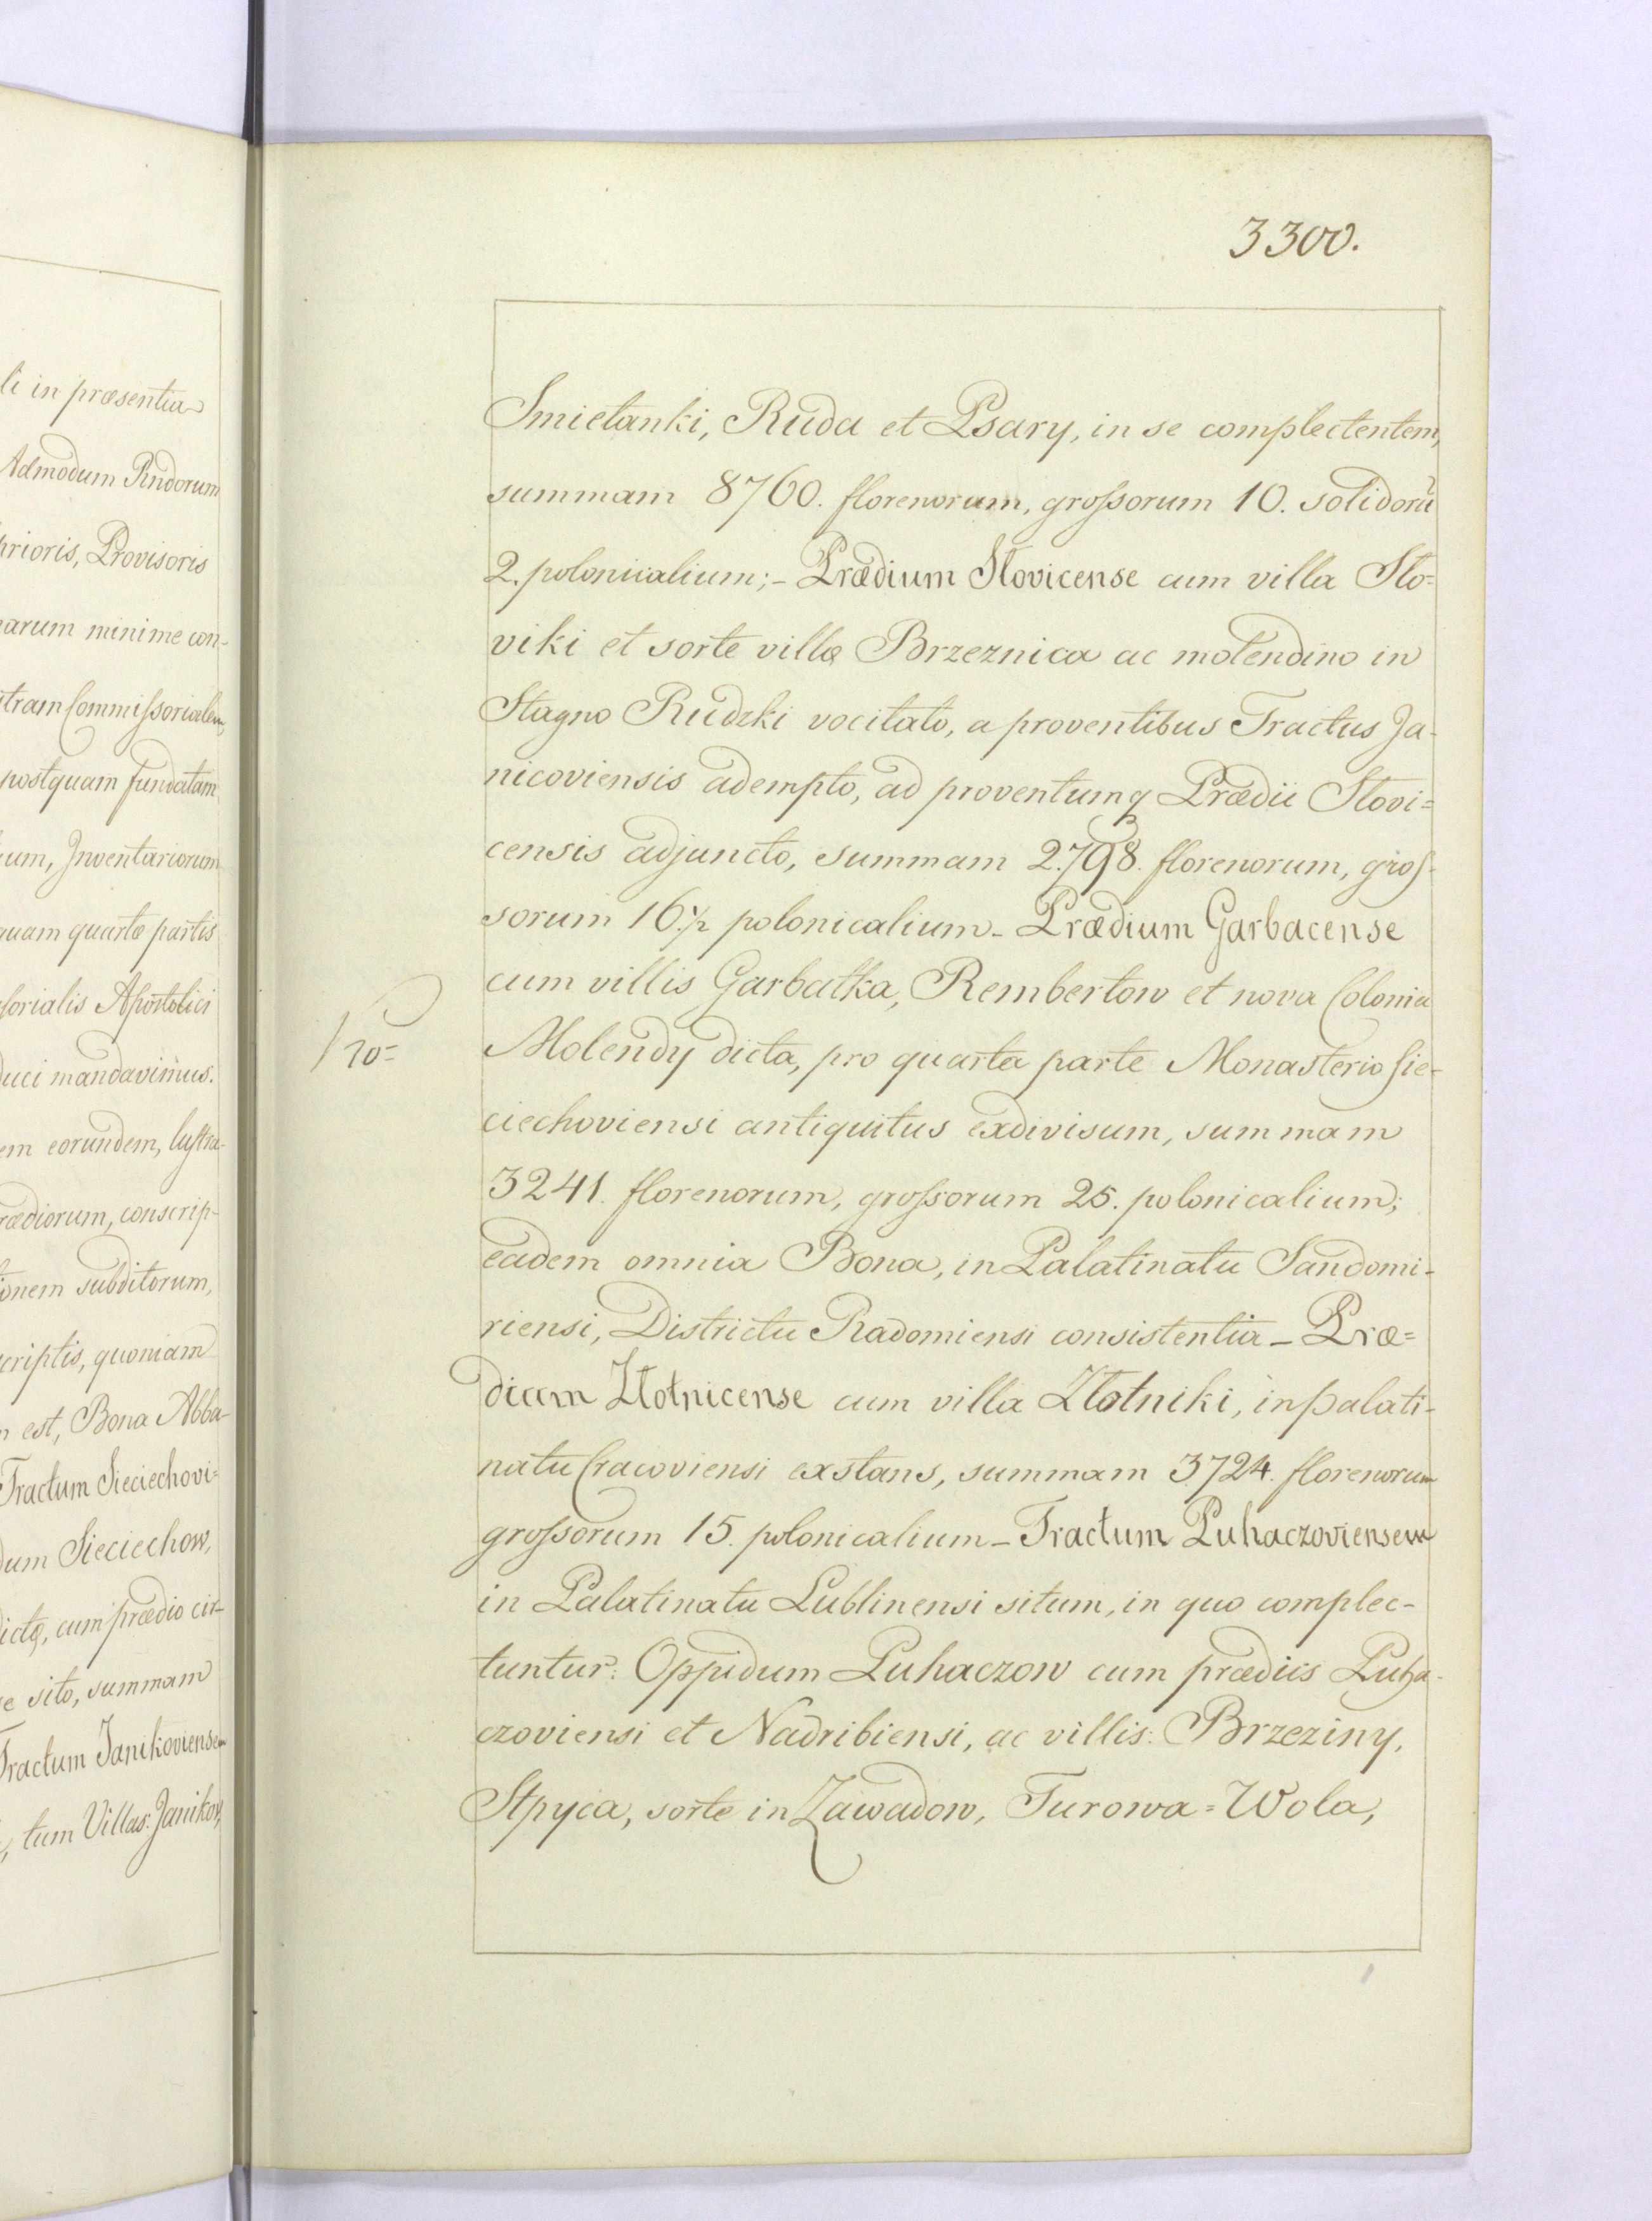 li in præsentia
Admodum Rndorum
prioris, Provisoris
narum minime con-
stram Commissorialem,
postquam fundatam
ium, Inventariorum
quam quartæ partis
sorialis Apostolici
duci mandavimus.
em eorundem, lustra-
rædiorum, conscrip-
ionem subditorum,
criptis, quoniam
est, Bona Abba-
Tractum Sieciechovi=
dum Sieciechow,
dictæ, cum prædio cir-
e sito, summam
Tractum Janikoviensem
, tum Villas: Janikow,
3300.
Smietanki, Ruda et Psary, in se complectentem,
summam 8760. florenorum, grossorum 10. solidorũ
2. polonicalium;- Prædium Slovicense cum villa Slo=
viki et sorte villæ Brzeznica ac molendino in
Stagno Rudzki vocitato, a proventibus Tractus Ja-
nicoviensis adempto, ad proventumq Prædii Slovi=
censis adjuncto, summam 2798. florenorum, gros-
sorum 16½ polonicalium - Prædium Garbacense
cum villis Garbatka, Rembertow et nova Colonia
Molendy dicta, pro quarta parte Monasterio Sie-
ciechoviensi antiquitus exdivisum, summam
3241. florenorum, grossorum 25. polonicalium;
eadem omnia Bona, in Palatinatu Sandomi-
riensi, Districtu Radomiensi consistentia - Præ=
dium Złotnicense cum villa Złotniki, in palati-
natu Cracoviensi exstans, summam 3724. florenorum
grossorum 15. polonicalium - Tractum Puhaczoviensem
in Palatinatu Lublinensi situm, in quo complec-
tuntur: Oppidum Puhaczow cum prædiis Puha-
czoviensi et Nadribiensi, ac villis: Brzeziny,
Stpyca, sorte in Zawadow, Turowa=Wola,